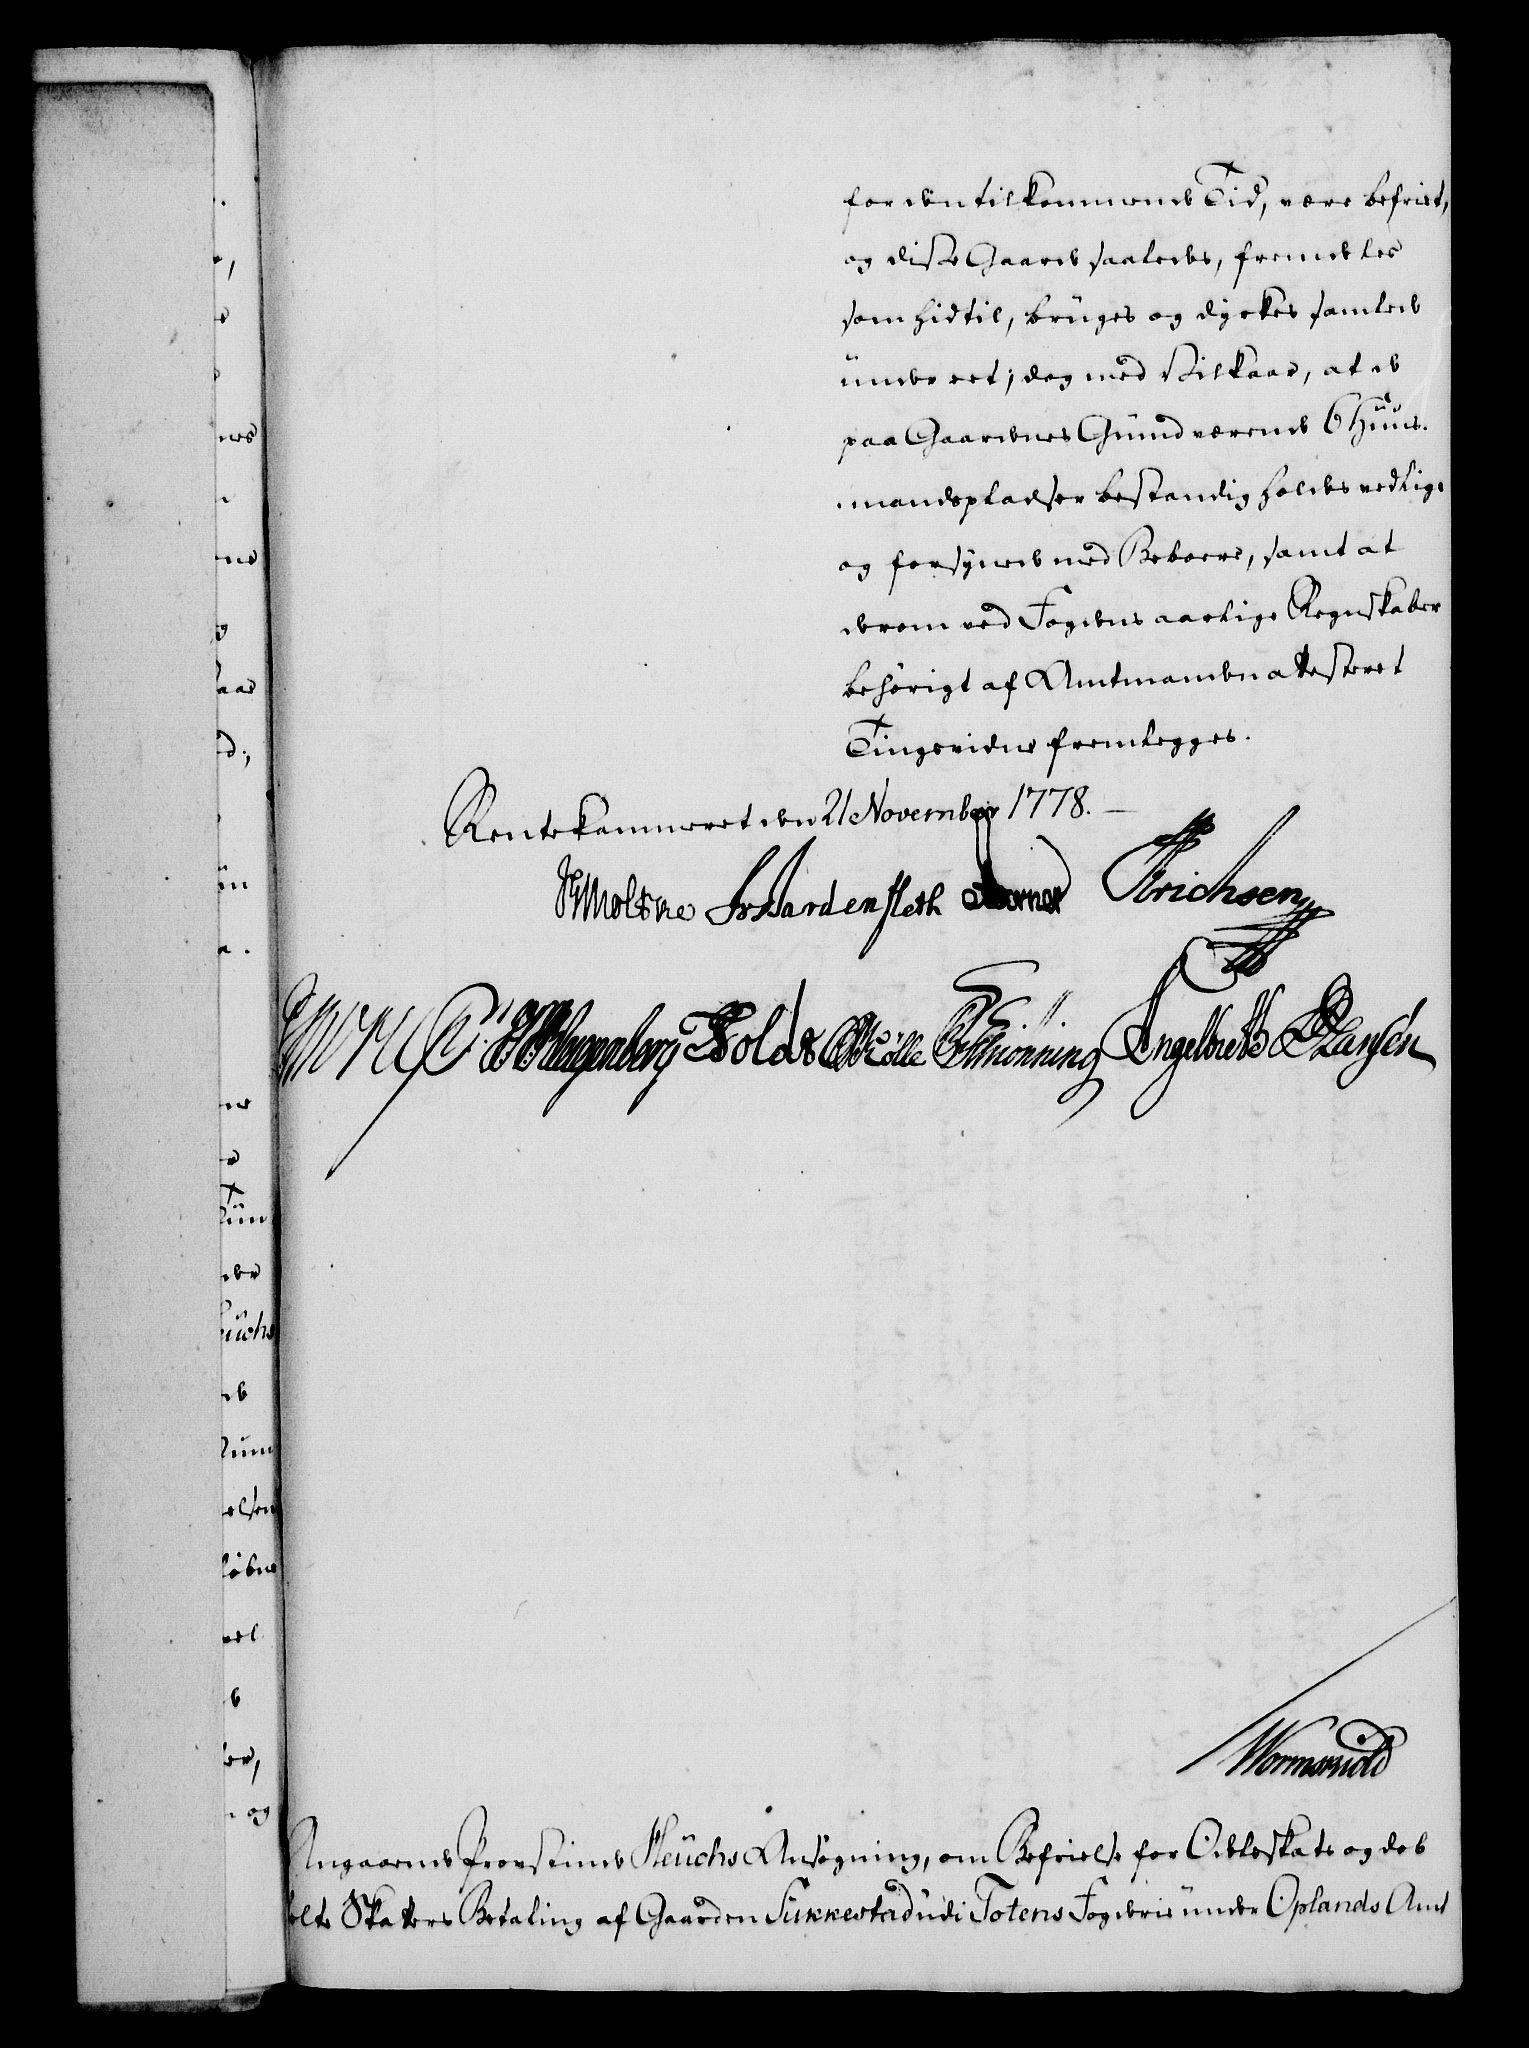 for den tilkommende Tid, være befriet,
og disse Gaarde saaledes, fremdeles
som hidtil, brüges og dyrkes samlede
ünder eet; dog med Vilkaar, at de
paa Gaardenes Gründ værende 6 Hüüs-
mandspladser bestandig holdes vedlige
og forsynede med Beboere, samt at
derom ved Fogdens aarlige Regnskaber
behörigt af Amtmanden attesteret
Tingsvidne fremlegges.
Rentekammeret den 21 November 1778.
HMoltke Hardenfleth Erichsen
Klagenberg Holdt Mölle Schiönning Engelbrett Hansen
Wormskiold
Angaaende Provstinde Heüchs Ansögning, om Befrielse for Odelsskats og dob
belte Skatters Betaling af Gaarden Sükkestad üdi Totens Fogderie ünder Oplands Amt